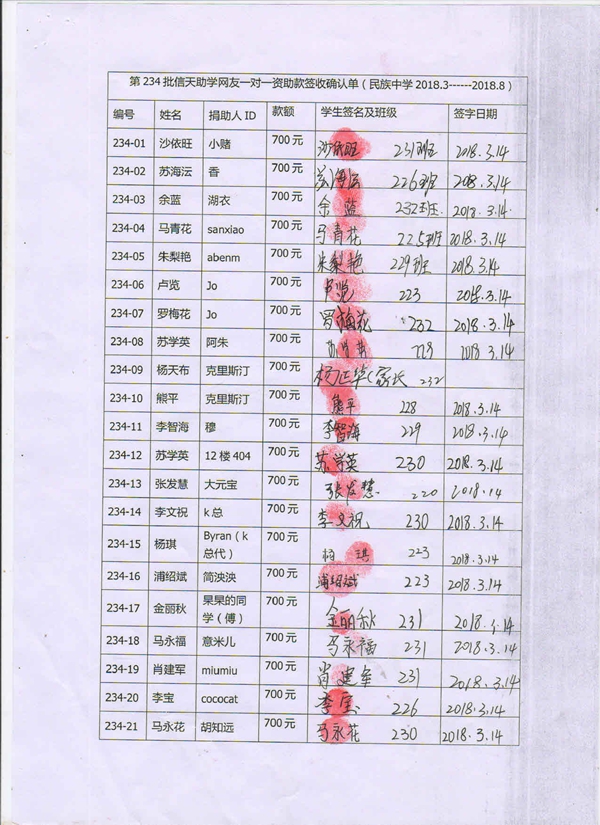 第 234 批信天助学网友一对一资助款签收确认单（民族中学 2018.3------2018.8）
编号 姓名 捐助人 ID 款额 学生签名及班级 签字日期
234-01 沙依旺 小赌 700 元 沙依旺 231班 2018.3.14
234-02 苏海沄 香 700 元 苏海沄 226班 2018.3.14
234-03 余蓝 湖衣 700 元 余蓝 232班. 2018.3.14.
234-04 马青花 sanxiao 700 元 马青花 225班 2018.3.14
234-05 朱梨艳 abenm 700 元 朱梨艳 229班 2018.3.14
234-06 卢览 Jo 700 元 卢览 223 2018.3.14
234-07 罗梅花 Jo 700 元 罗梅花 232 2018.3.14
234-08 苏学英 阿朱 700 元 苏学英 228 2018 3.14
234-09 杨天布 克里斯汀 700 元 杨正华(家长 232
234-10 熊平 克里斯汀 700 元 熊平 228 2018.3.14
234-11 李智海 穆 700 元 李智海 229 2018.3.14
234-12 苏学英 12 楼 404 700 元 苏学英 230 2018.3.14
234-13 张发慧 大元宝 700 元 张发慧 220 2018.14
234-14 李文祝 k 总 700 元 李文祝 230 2018.3.14
234-15 杨琪 Byran（k 总代） 700 元 杨琪 223 2018.3.14
234-16 浦绍斌 简泱泱 700 元 浦绍斌 223 2018.3.14
234-17 金丽秋 杲杲的同学（傅） 700 元 金丽秋 231 2018.3.14
234-18 马永福 意米儿 700 元 马永福 231 2018.3.14
234-19 肖建军 miumiu 700 元 肖建军 231 2018.3.14
234-20 李宝 cococat 700 元 李宝 226 2018.3.14
234-21 马永花 胡知远 700 元 马永花 230 2018.3.14